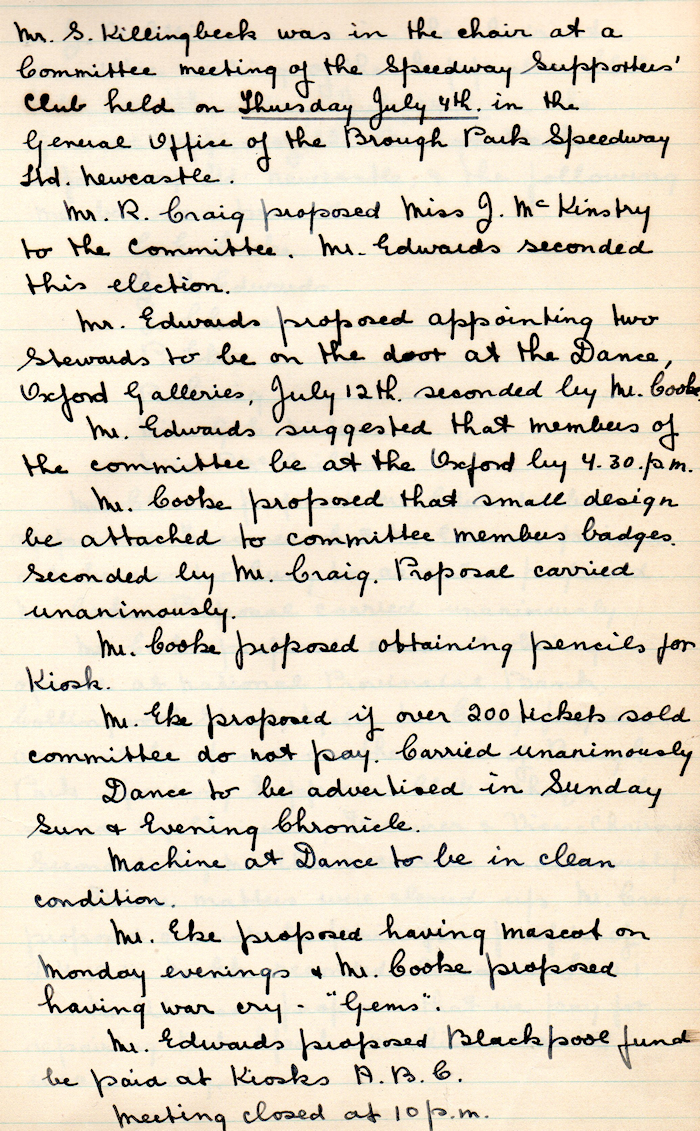 Mr. S. Killingbeck was in the chair at a
Committee meeting of the Speedway Supporters'
Club held on Thuesday July 4th. in the
General Office of the Brough Park Speedway
Ltd. Newcastle.
Mr. R. Craig proposed Miss J. McKinstry
to the Committee. Mr. Edwards seconded
this election.
Mr. Edwards proposed appointing two
Stewards to be on the door at the Dance,
Oxford Galleries, July 12th. seconded by Mr. Cooke
Mr. Edwards suggested that members of
the committee be at the Oxford by 4.30.p.m.
Mr. Cooke proposed that small design
be attached to committee members badges.
Seconded by Mr. Craig. Proposal carried
unanimously.
Mr. Cooke proposed obtaining pencils for
Kiosk.
Mr. Eke proposed if over 200 tickets sold
committee do not pay. Carried unanimously
Dance to be advertised in Sunday
Sun & Evening Chronicle.
Machine at Dance to be in clean
condition.
Mr. Eke proposed having mascot on
Monday evenings & Mr. Cooke proposed
having war cry - "Gems".
Mr. Edwards proposed Blackpool fund
be paid at Kiosks A.B.C.
Meeting closed at 10 p.m.